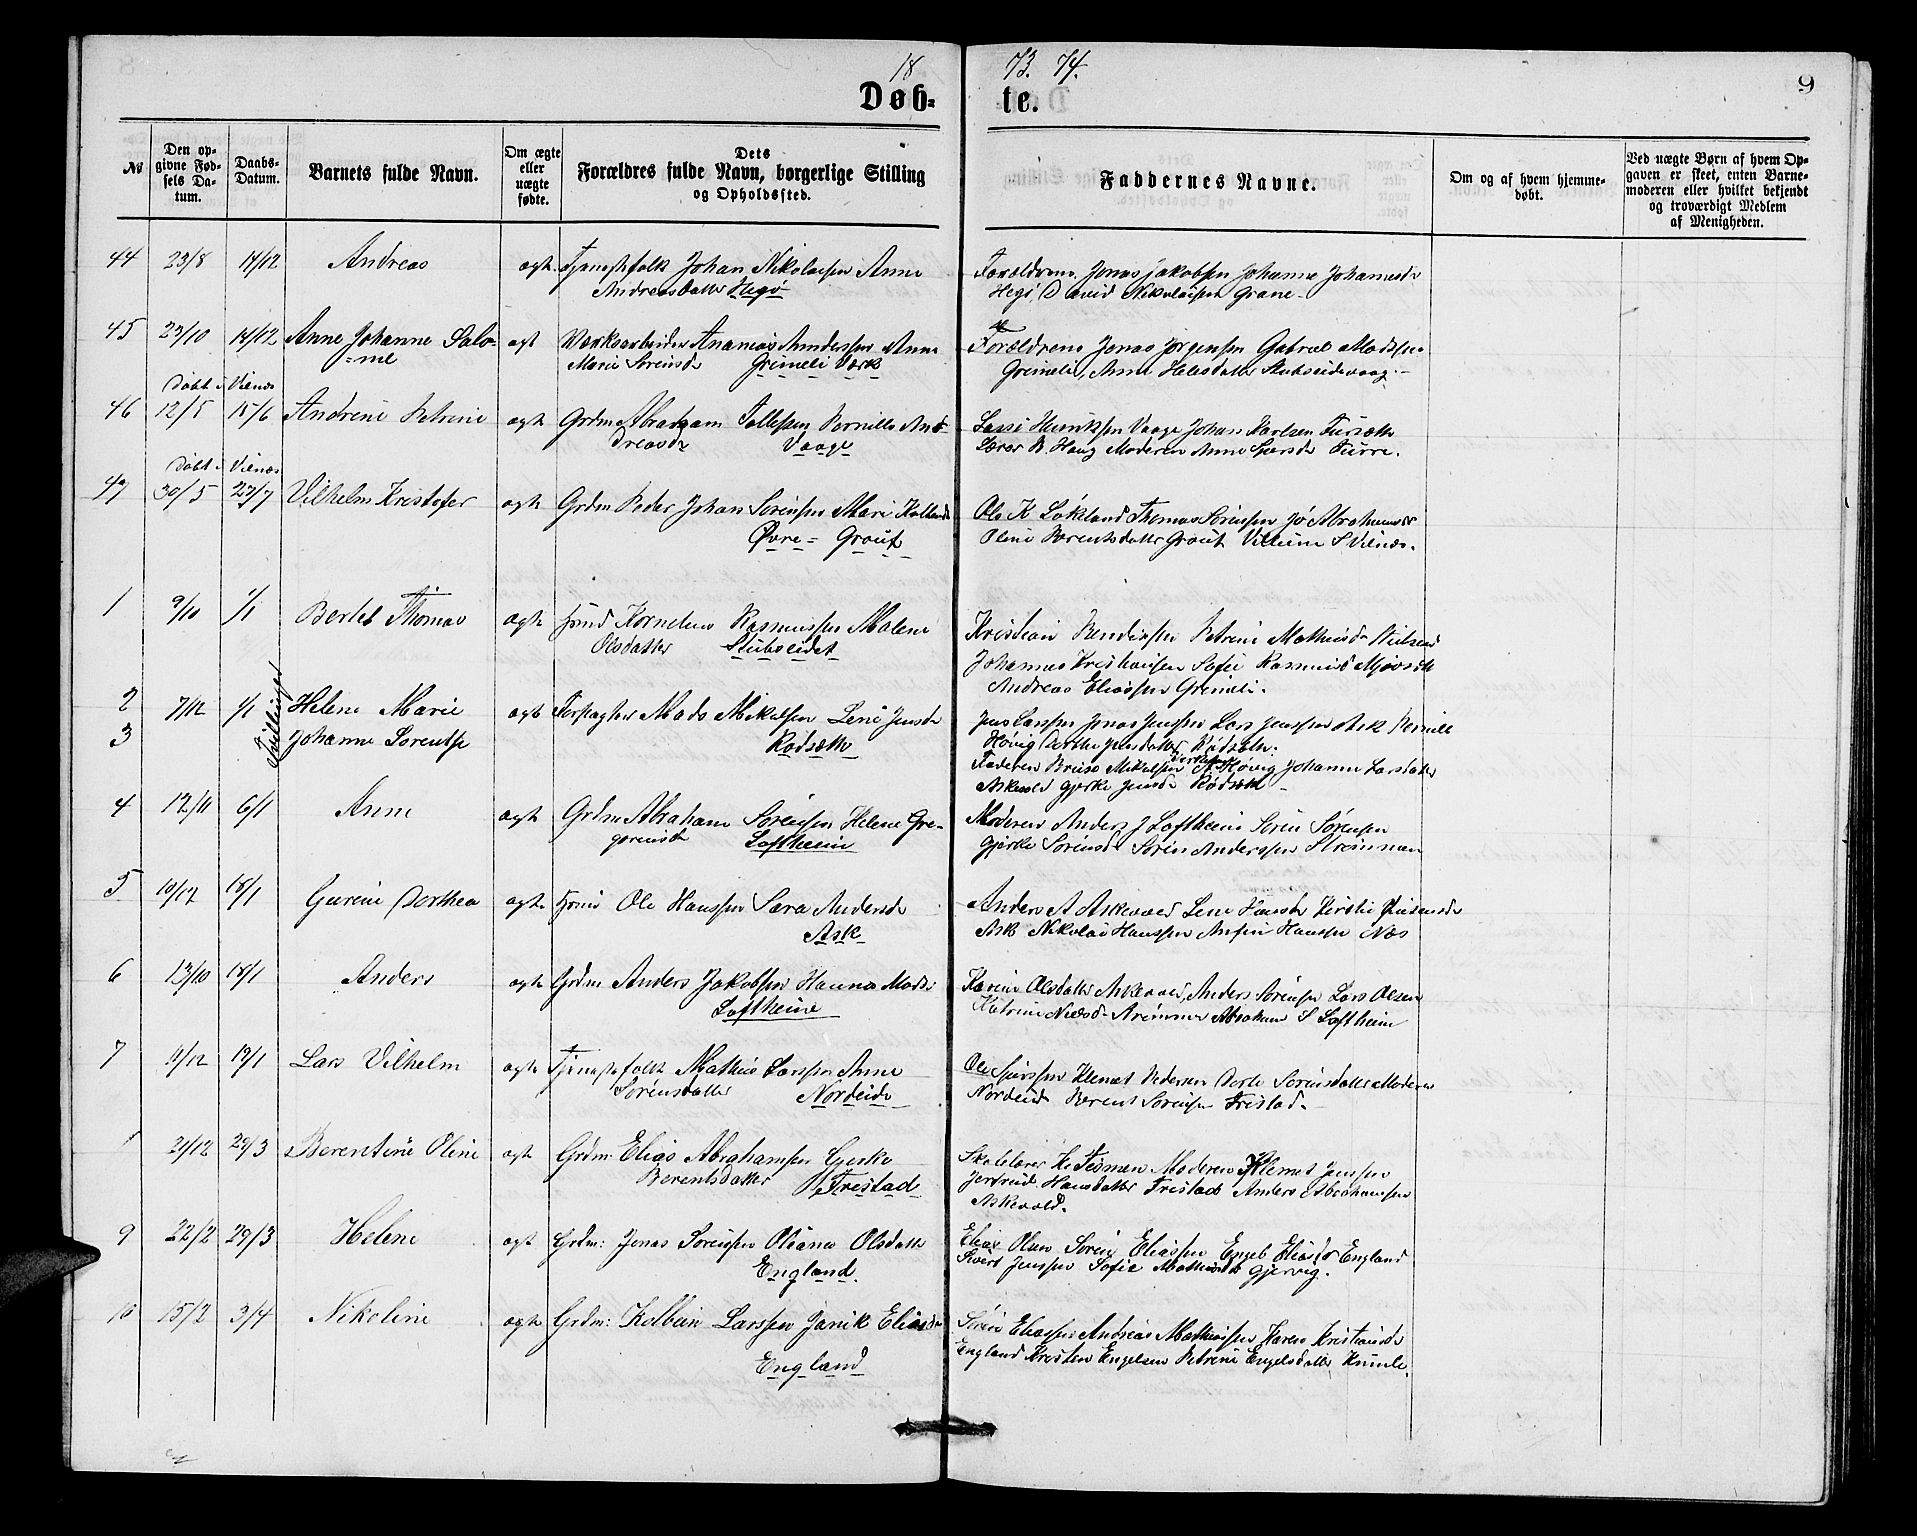 1873. 74.
9
Døbte.
№
Den opgivne Fødsels Datum.
Daabs-Datum.
Barnets fulde Navn.
Om ægte eller uægte fødte.
Dets Forældres fulde Navn, borgerlige Stilling og Opholdssted.
Faddernes Navne.
Om og af hvem hjemmedøbt.
Ved uægte Børn af hvem Opgaven er skeet, enten Barnemoderen eller hvilket bekjendt og troværdigt Medlem af Menigheden.
44 23/8 14/12 Andreas ægte Tjenestefolk Johan Nikolaisen Anne
Andreasdatter Hegø
Forældrene, Jonas Jakobsen Johanne Johannesdr
Hegø, David Nikolaisen Grane
45 23/10 14/12 Anne Johanne Salo-
=me
ægt Værksarbeider Ananias Anderssen Anne
Marie Sørensdr Grimeli Værk
Forældrene Jonas Jørgensen Gabriel Madssen
Grimeli, Anne Stubseidvaag.
Døbt i Vilnæs
46 12/5 15/6 Andrine Petrine ægte Grdm Abraham Tollefsen Pernille An-
dreasdr Vaage
Lasse Henrikssen Vaage Johan Karlsen Furseth
Lærer B. Haug Moderen Anne Furre.
Døbt i Vilnæs
47 30/5 27/7 Vilhelm Kristofer ægte Grdm Peder Johan Sørensen Mari
Øvre = Grøut
Ole K Løkeland Thomas Sørensen
Oline Berentsdatter Grout S Vilnæs.
1 9/10 1/1 Bertel Thomas ægte Kornelius Rasmussen Malene
Olsdatter Stubseidet
Kristian Petrine Mathiasdr
Johannes Kristiansen Sofie Rasmusd
Andreas Eliassen Grimeli.
Tvillinger
2 7/12 1/1 Helene Marie ægte Forpagter Mads Mikelsen Lene Jensdr
3 Johanne
Rødsæth
Jens Larssen Jonas Jenssen Lars Jenssen Ask Pernille
Høvig Dorthe Jensdatter Rødsæth.
Faderen Mikelsen Høvig Johanne Larsdatter
Askevold Gjerke Jensdr Rødsæth
4 12/11 6/1 Anne ægte Grdm Abraham Sørensen Helene Gre-
goriusdr Loftheim
Moderen Anders J Loftheim Søren Sørensen
Gjerke Sørensd Søren Anderssen Strømmen
5 10/12 18/1 Gurine Dorthea ægte Ole Hanssen Sara Andersdr
Ask
Anders A Askevold Lene Hansdr Kirstie
Ask Nikolai Hanssen Anfin Hanssen Næs
6 13/10 18/1 Anders ægte Grdm Anders Jakobsen Hanna Madsdr
Loftheim
Karine Olsdatter Askevold, Anders Sørensen Lars Olsen
Katrine Nielsd Abraham S Loftheim
7 11/12 19/1 Lars Vilhelm ægte Tjenestefolk Mathias Larssen Anne
Sørensdatter Nordeide
Ole Klemet Pedersen Dorte Sørensdatter Moderen
Nordeide Berent Sørensen Fristad
21/12 29/3 Berentine Oline ægt Grdm: Elias Abrahamsen Gjerke
Berentsdatter Fristad
Skolelærer Moderen Klemet Jenssen
Jertrud Hansdatter Fristad Anders Abrahamsen
Askevold.
9 22/2 29/3 Helene ægt Grdm: Jonas Sørensen Oliane Olsdatter
England
Elias Olsen Søren Eliassen Engel Eliasdr England
Sivert Jenssen Sofie Mathiasdr Gjervig.
10 15/2 3/4 Nikoline ægte Grdm: Kolbein Larssen Janik Eliasdr
England
Sørine Eliassen Andreas Mathiassen Karen Kristiansdr
England Kristen Engelsen Petrine Engelsdatter